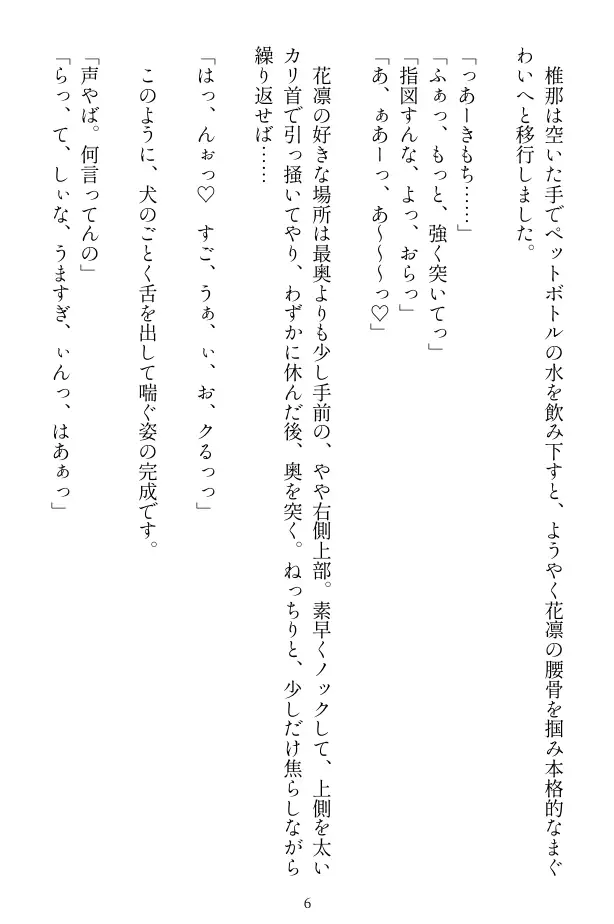 椎那は空いた手でペットボトルの水を飲み下すと、ようやく花凛の腰骨を掴み本格的なまぐ
わいへと移行しました。
「っあーきもち……」
「ふぁっ、もっと、強く突いてっ」
「指図すんな、よっ、おらっ」
「あ、ぁあーっ、あ～～～っ♡」
花凛の好きな場所は最奥よりも少し手前の、やや右側上部。素早くノックして、上側を太い
カリ首で引っ掻いてやり、わずかに休んだ後、奥を突く。ねっちりと、少しだけ焦らしながら
繰り返せば……
「はっ、んぉっ♡　すご、うぁ、ぃ、お、クるっっ」
このように、犬のごとく舌を出して喘ぐ姿の完成です。
「声やば。何言ってんの」
「らっ、て、しぃな、うますぎ、ぃんっ、はあぁっ」
6